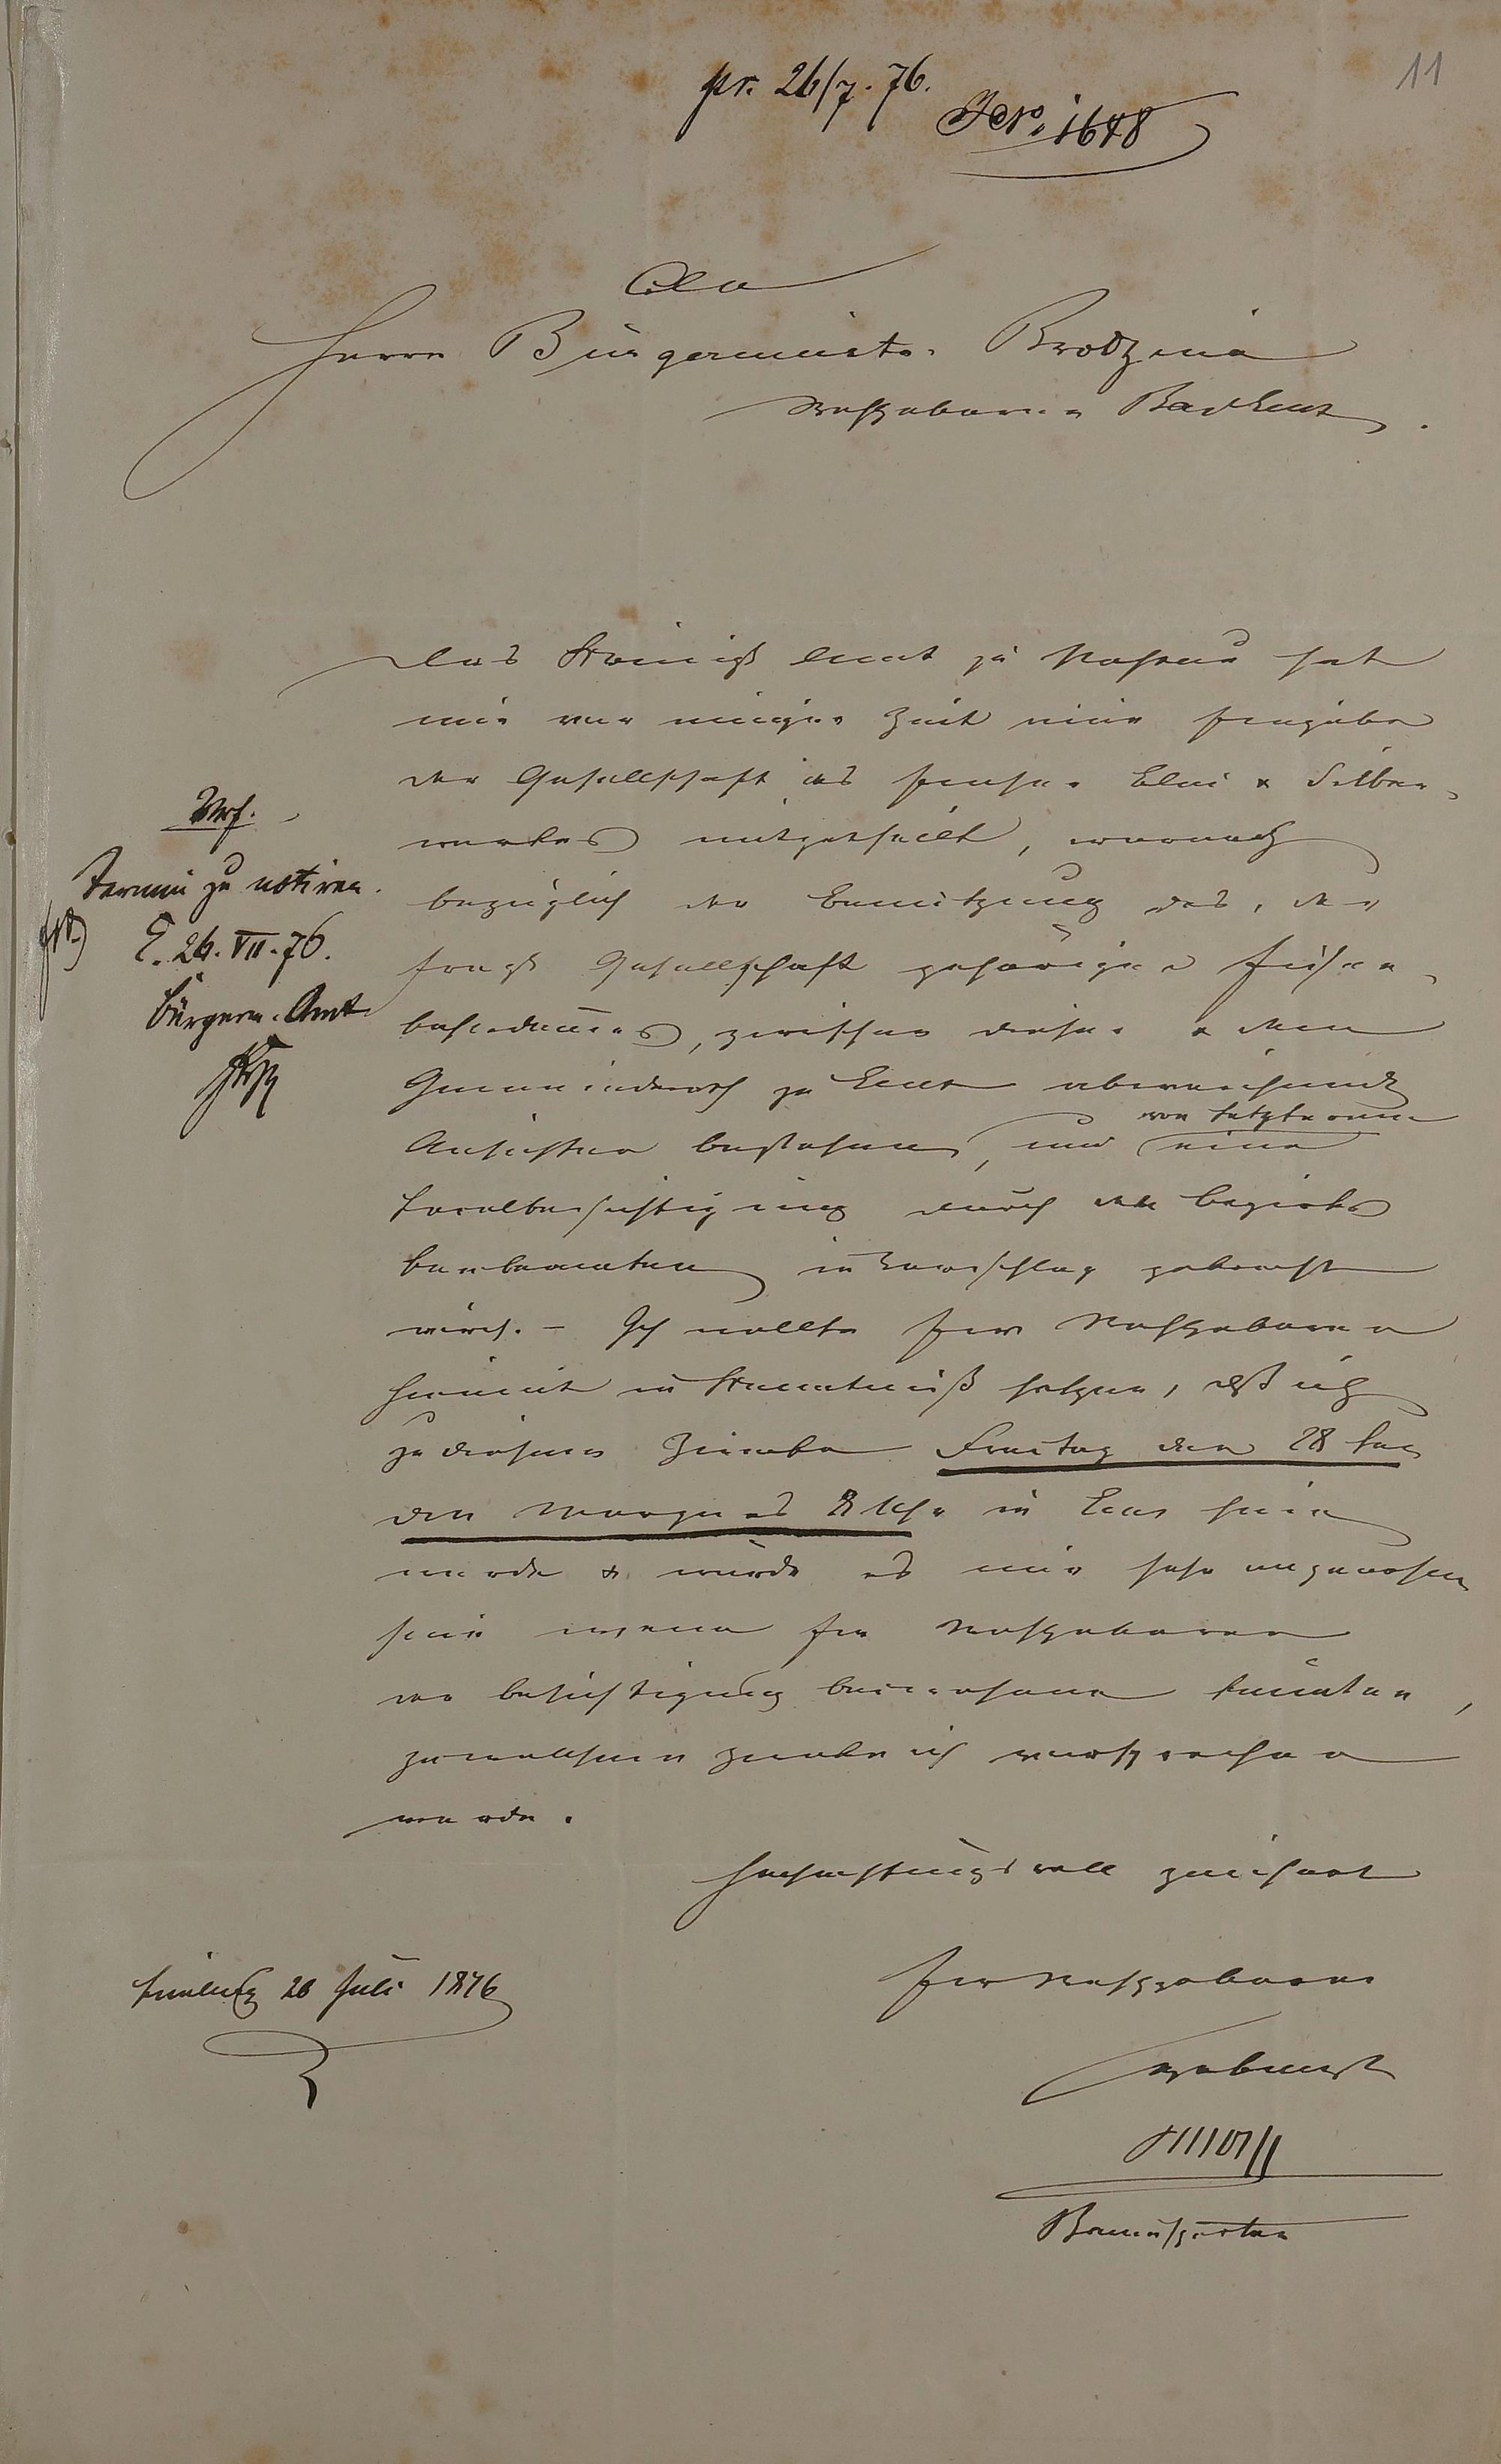 11
pr. 26/7. 76.
JNo. 1648
An
Herrn Bürgermeister
Wohlgeboren Bad Ems.
Das Königl. Amt zu Nassau hat
mir vor einiger Zeit eine Eingabe
der Gesellschaft des Emser Blei & Silber-
werkes mitgetheilt, wonach
bezüglich der Benutzung des, der
fragl. Gesellschaft gehörigen Eisen-
bahndammes, zwischen dieser & dem
Gemeinderath zu Ems abweichende
Ansichten bestehen, und von letzterem eine
Localbesichtigung durch den Bezirks
baubeamten in Vorschlag gebracht
wird. – Ich wollte Euer Wohlgeboren
hiermit in Kenntniß setzen, daß ich
zu diesem Zwecke Freitag den 28ten
des Morgens 8 Uhr in Ems sein
werde & würde es mir sehr angenehm
sein wenn Euer Wohlgeboren
der Besichtigung beiwohnen könnten,
zu welchem Zwecke ich vorsprechen
werde.
Hochachtungsvoll zeichnet
Euer Wohlgeboren
ergebenst
Limburg 26 Juli 1876
Vrf.
Termin zu notiren.
E. 26. VII. 76.
Bürgerm. Amt